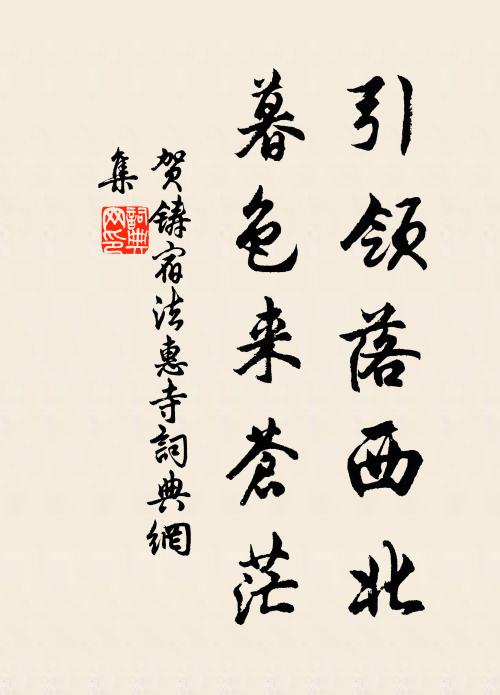 引领落西北
暮色来苍茫
贺铸宿法惠寺詞典網
集
詞典网印